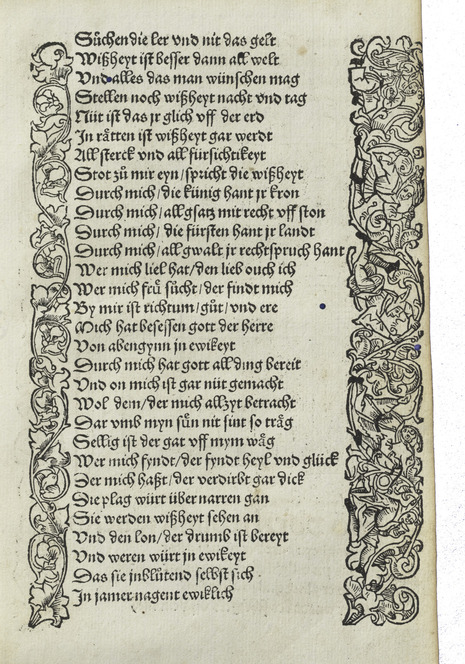 Suͦchen die ler vnd nit das gelt
Wißheyt ist besser dann all welt
Vnd alles das man wünschen mag
Stellen noch wißheyt nacht vnd tag
Nüt ist das jr glich vff der erd
In raͤtten ist wißheyt gar werdt
All sterck vnd all fürsichtikeyt
Stot zuͦ mir eyn / spricht die wißheyt
Durch mich / die künig hant jr kron
Durch mich / all gsatz mit recht vff ston
Durch mich / die fürsten hant jr landt
Durch mich / all gwalt jr rechtspruch hant
Wer mich liel hat / den lieb ouch ich
Wer mich fruͤ suͤcht / der findt mich
By mir ist richtum / guͦt / vnd ere
Mich hat besessen gott der herre
Von abengynn jn ewikeyt
Durch mich hat gott all ding bereit
Vnd on mich ist gar nüt gemacht
Wol dem / der mich allzyt betracht
Dar vmb myn suͤn nit sint so traͤg
Sellig ist der gat vff mym waͤg
Wer mich fyndt / der fyndt heyl vnd glück
Der mich haßt / der verdirbt gar dick
Die plag würt über narren gan
Sie werden wißheyt sehen an
Vnd den lon / der drumb ist bereyt
Vnd weren würt jn ewikeyt
Das sie jnbluͤtend selbst sich
In jamer nagent ewiklich